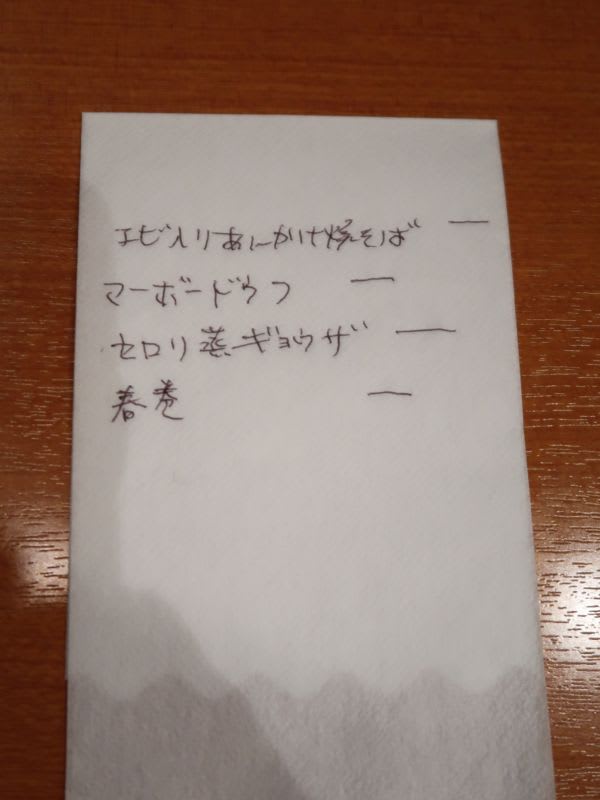 エビ入りあんかけ焼そば 一
マーボードウフ 一
セロリ蒸ギョウザ 一
春巻 一